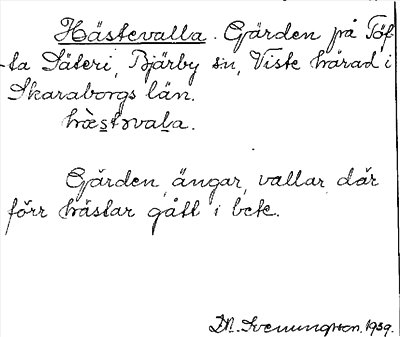 Hästevalla. Gärden på Töf-
ta Säteri, Bjärby sn, Viste härad i
Skaraborgs län.
hæ̀stəvaḷa.
Gärden, ängar, vallar där
förr hästar gått i bete.
D. M. Svenungsson. 1939.